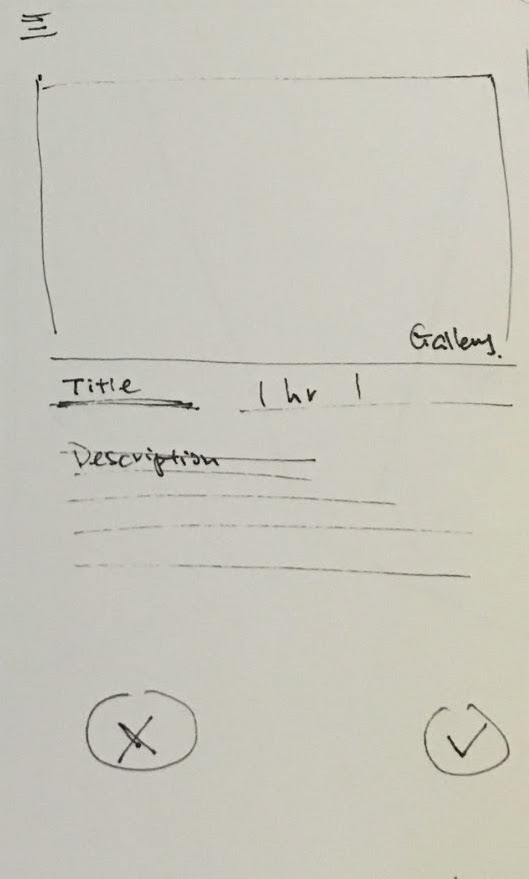 Gallery.
Title 1 hr |
Description